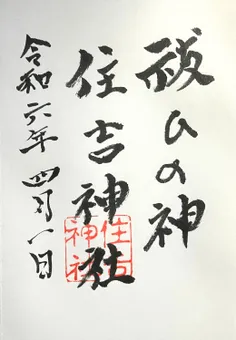 祓ひの神
住吉神社
令和六年 四月一日
住吉
神社